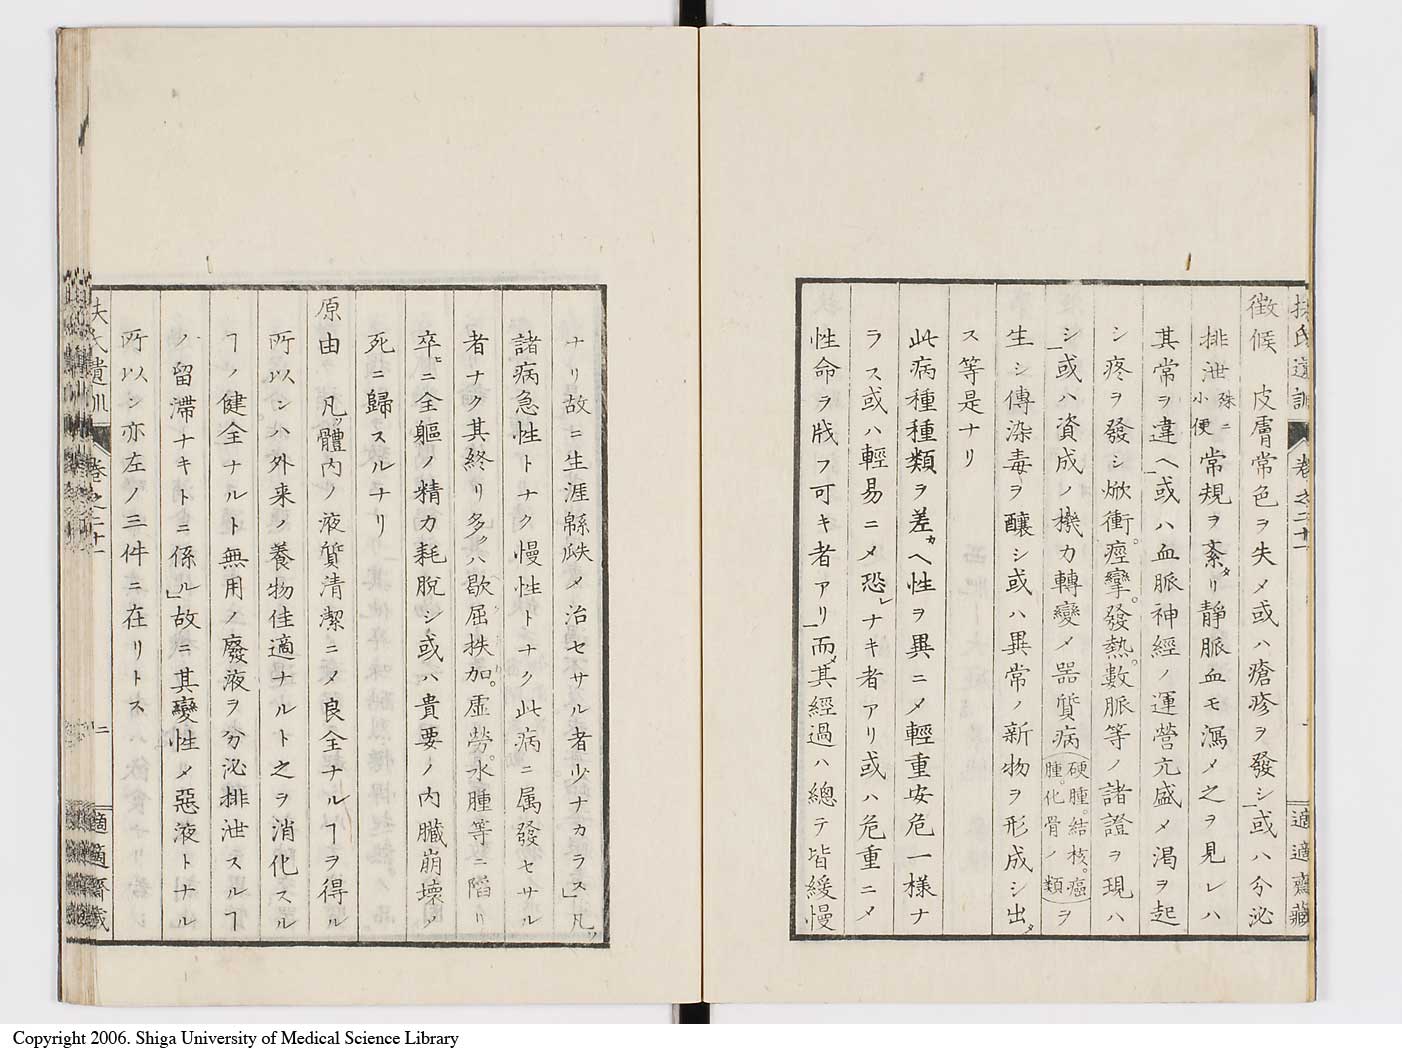 扶氏遺訓 卷之二十一 一 適適齋藏
徴候 皮膚常色ヲ失メ或ハ瘡疹ヲ發シ」或ハ分泌
排泄殊ニ小便常規ヲ紊タリ靜脈血モ瀉メ之ヲ見レハ
其常ヲ違ヘ」或ハ血脈神經ノ運營亢盛メ渇ヲ起
シ疼ヲ發シ焮衝。痙攣。發熱。數脈等ノ諸證ヲ現ハ
シ」或ハ資成ノ機力轉變メ器質病(硬腫。結核。癌腫。化骨ノ類)ヲ
生シ傳染毒ヲ釀シ或ハ異常ノ新物ヲ形成シ出タ
ス等是ナリ
此病種種類ヲ差カヘ性ヲ異ニメ輕重安危一樣ナ
ラス或ハ輕易ニメ恐レナキ者アリ或ハ危重ニメ
性命ヲ戕フ可キ者アリ」而メ其經過ハ總テ皆緩慢
ナリ故ニ生涯緜眣メ治セサル者少ナカラス」凡ソ
諸病急性トナク慢性トナク此病ニ属發セサル
者ナク其終リ多クハ歇屈扶加。虚勞。水腫等ニ陷リ
卒ニ全軀ノ精力耗脱シ或ハ貴要ノ内臟崩壞メ
死ニ歸スルナリ
原由 凡ソ體内ノ液質清潔ニメ良全ナルヿヲ得ル
所以ンハ外來ノ養物佳適ナルト之ヲ消化スル
ヿノ健全ナルト無用ノ廢液ヲ分泌排泄スルヿ
ノ留滯ナキトニ係ル」故ニ其變性メ惡液トナル
所以ン亦左ノ三件ニ在リトス
扶氏遺訓 卷之二十一 二 適適齋藏
Copyright 2006. Shiga University of Medical Science Library